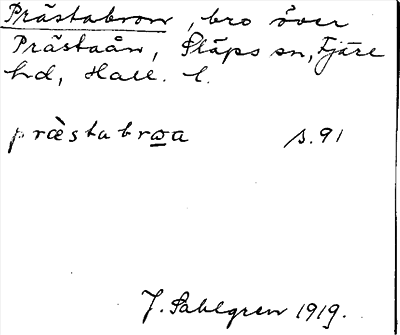 Prästabron, bro över
Prästaån, Släps sn, Fjäre
hd, Hall. l.
præ̀stabroa s. 91
J. Sahlgren 1919.